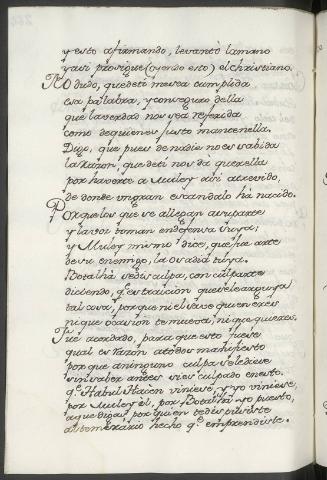 y esto afirmando, levantò la mano
y assi prosigue (oyendo esto) el christiano.
No dudo, que de ti me sea cumplida
esa palabra, y con seguro della
que la verdad nos sea referida
como de quien es justo mantenella.
Dijo, que pues de nadie no es sabida
la razon, que de ti nos dá querella
por haverte a Muley assi atrevido,
de donde un gran escandalo hà nacido.
Porque los que se allegan a su parte
y la voz toman en defensa suya;
y Muley mismo dice, que sea arte
de su enemigo, la osadia tuya.
Botalhà se disculpa, con culparte
diciendo, qe. es traicion que se le arguya
tal cosa, porque ni el sabe quien eres
ni que ocasion te mueva, ni que quieres.
Fue acordado, para que esto fuese
qual es razon a todos manifiesto
porque a ninguno culpa se le diese
sin saber antes si es culpado en esto.
qe. Habul Hacen viniese, y yo viniese,
por Muley èl, por Botalhà yo puesto,
a que digas por quien te dispusiste
al temerario hecho qe. emprendiste.